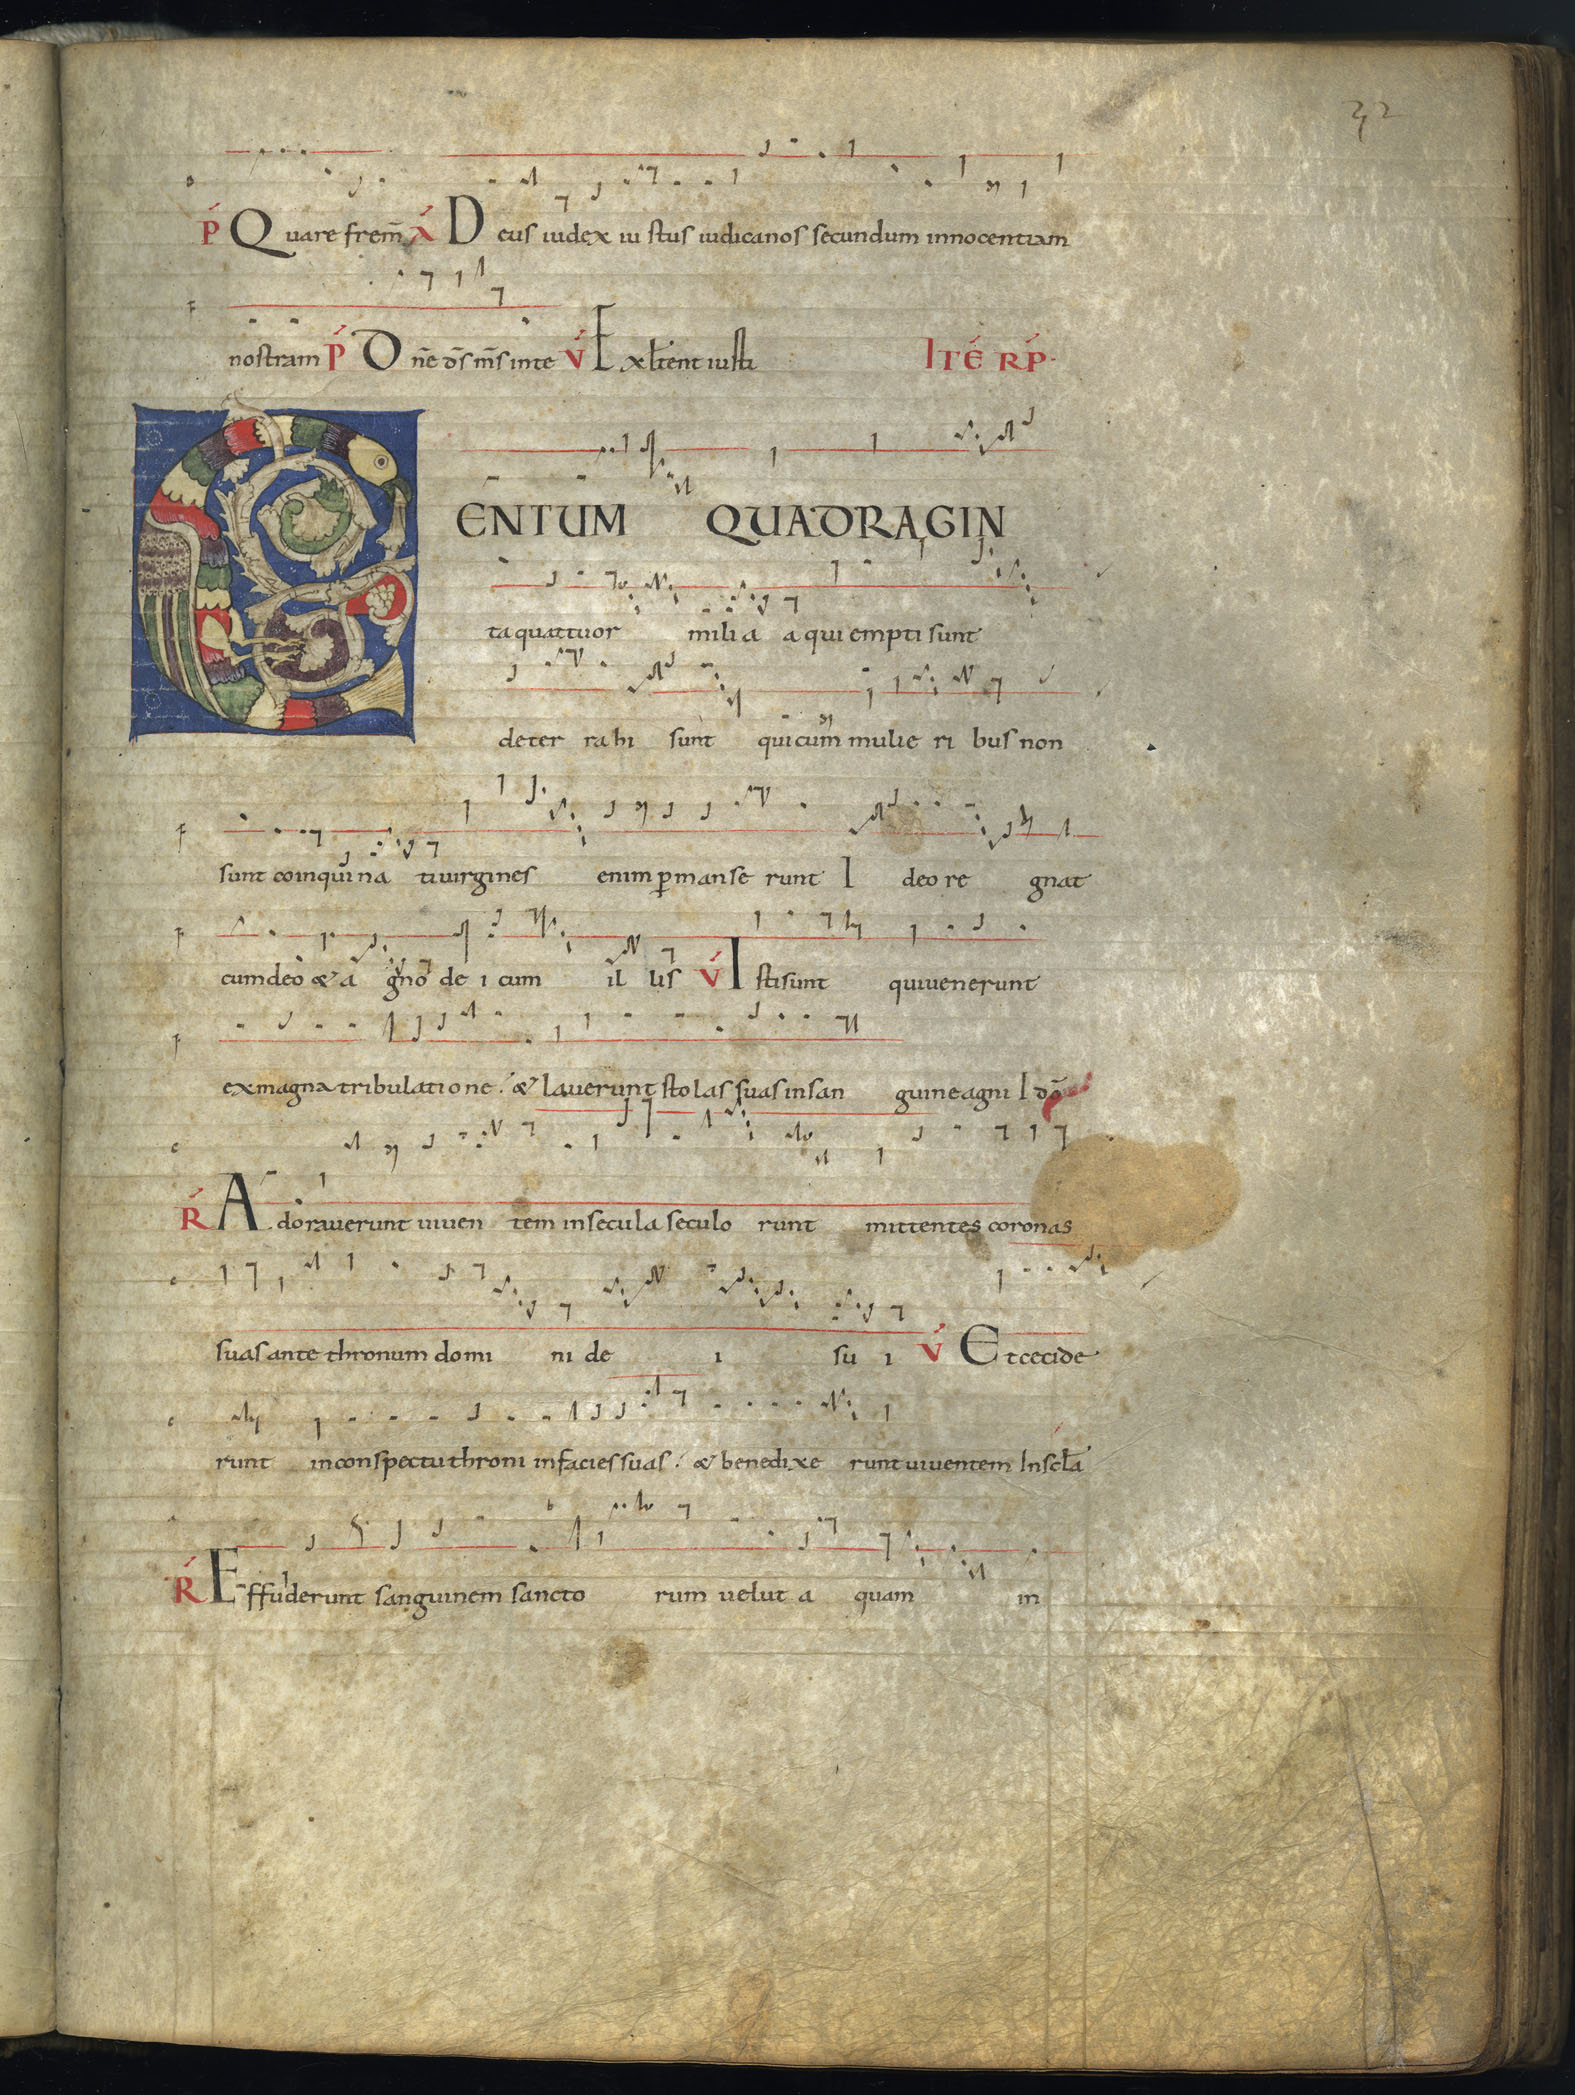 32
P Quare frem̄ A Deus iudex iustus iudica nos secundum innocentiam
nostram P Dn̄e ds̄ ms̄ in te V Exl̄tent iusti ITĒ RP.
CENTUM QUADRAGIN
ta quattuor milia a qui empti sunt
de terra hi sunt qui cum mulieribus non
sunt coinquinati uirgines enim ꝑmanserunt Ideo regnat
cum deo & agnus dei cum illis V Isti sunt qui uenerunt
ex magna tribulatione. & lauerunt stolas suas in sanguine agni I dō
R Adorauerunt uiuentem in secula seculorunt mittentes coronas
suas ante thronum domini dei sui V Et cecide
runt in conspectu throni in facies suas. & benedixerunt uiuentem In scl̄a
R Effuderunt sanguinem sanctorum uelut aquam in